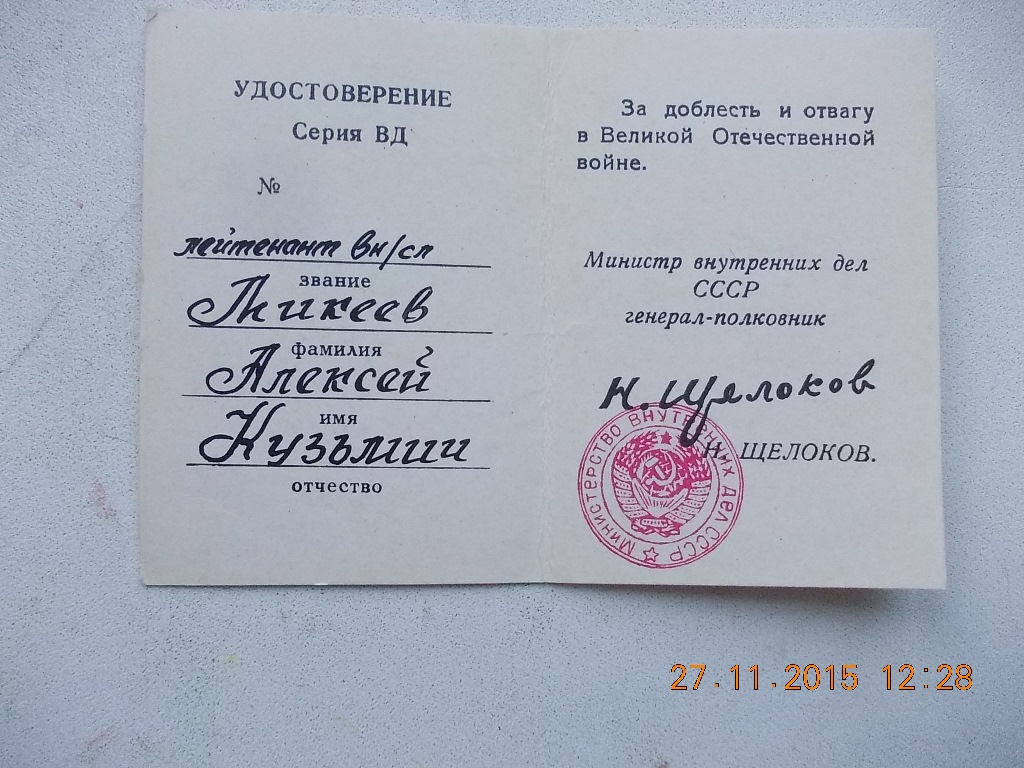 УДОСТОВЕРЕНИЕ
Серия ВД
№
лейтенант вн/сл
звание
Тикеев
фамилия
Алексей
имя
Кузьмич
отчество
За доблесть и отвагу
в Великой Отечественной
войне.
Министр внутренних дел
СССР
генерал-полковник
Н. Щелоков
Н. ЩЕЛОКОВ.
МИНИСТЕРСТВО ВНУТРЕННИХ ДЕЛ СССР
27.11.2015 12:28